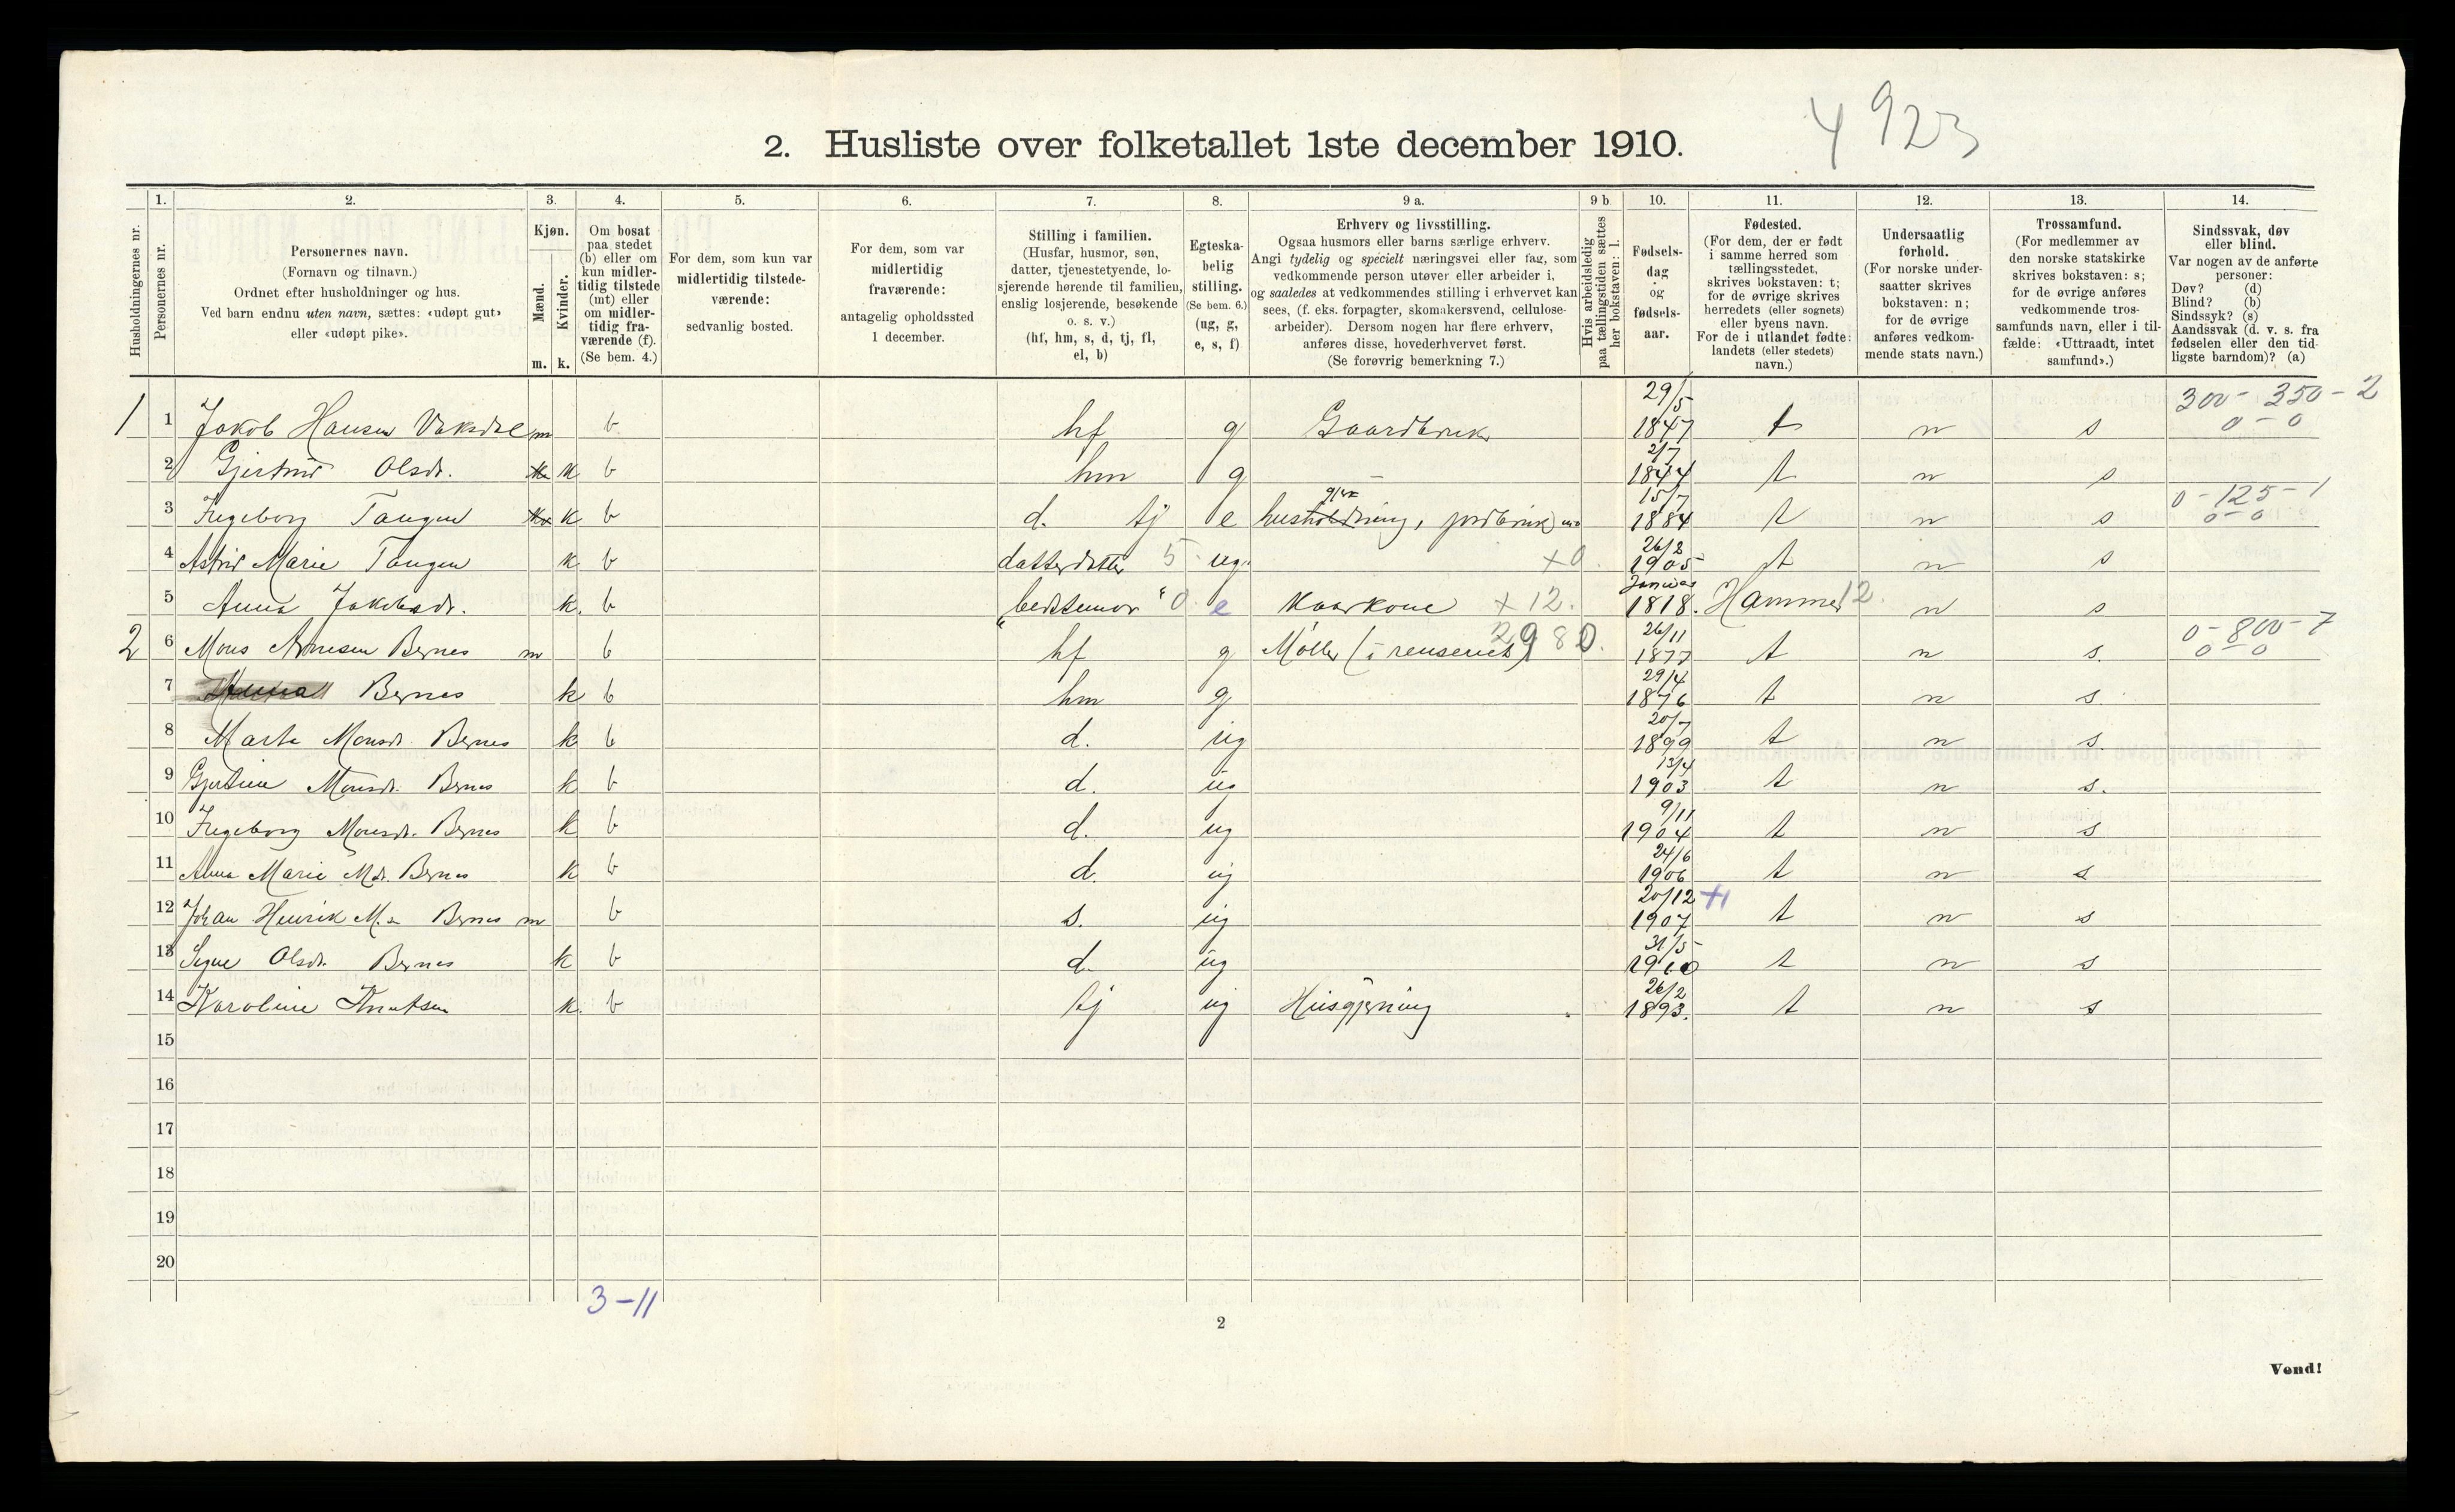 4 923
2. Husliste over folketallet 1ste december 1910.
Husholdningernes nr.
1. Personernes nr.
2. Personernes navn. (Fornavn og tilnavn.) Ordnet efter husholdninger og hus. Ved barn endnu uten navn, sættes: «udøpt gut» eller «udøpt pike».
3. Kjøn. Mænd. m. Kvinder. k.
4. Om bosat paa stedet (b) eller om kun midlertidig tilstede (mt) eller om midlertidig fraværende (f). (Se bem. 4.)
5. For dem, som kun var midlertidig tilstedeværende: sedvanlig bosted.
6. For dem, som var midlertidig fraværende: antagelig opholdssted 1 december.
7. Stilling i familien. (Husfar, husmor, søn, datter, tjenestetyende, losjerende hørende til familien, enslig losjerende, besøkende o. s. v.) (hf, hm, s, d, tj, fl, el, b)
8. Egteskabelig stilling. (Se bem. 6.) (ug, g, e, s, f)
9 a. Erhverv og livsstilling. Ogsaa husmors eller barns særlige erhverv. Angi tydelig og specielt næringsvei eller fag, som vedkommende person utøver eller arbeider i, og saaledes at vedkommendes stilling i erhvervet kan sees, (f. eks. forpagter, skomakersvend, cellulosearbeider). Dersom nogen har flere erhverv, anføres disse, hovederhvervet først. (Se forøvrig bemerkning 7.)
9 b. Hvis arbeidsledig paa tællingstiden sættes her bokstaven: l.
10. Fødselsdag og fødselsaar.
11. Fødested. (For dem, der er født i samme herred som tællingsstedet, skrives bokstaven: t; for de øvrige skrives herredets (eller sognets) eller byens navn. For de i utlandet fødte: landets (eller stedets) navn.)
12. Undersaatlig forhold. (For norske undersaatter skrives bokstaven: n; for de øvrige anføres vedkommende stats navn.)
13. Trossamfund. (For medlemmer av den norske statskirke skrives bokstaven: s; for de øvrige anføres vedkommende trossamfunds navn, eller i tilfælde: «Uttraadt, intet samfund».)
14. Sindssvak, døv eller blind. Var nogen av de anførte personer: Døv? (d) Blind? (b) Sindssyk? (s) Aandssvak (d. v. s. fra fødselen eller den tidligste barndom)? (a)
1 1 Jakob Hansen Vaksdal m b hf g Gaardbruk 29/5 1847 t n s 300-350-2 0-0
2 Gjertrud Olsdr. k b hm g – 2/7 1844 t n s
3 Ingeborg Tangen k b d. tj e 15/7 1884 t n s 0-125-1 0-0
4 Astrid Marie Tangen k b datterdatter 5 ug. +0. 26/2 1905 t n s
5 Anna Jakobsdr. k. b bedstemor 0 e Kaarkone +12. Januar 1818. Hammer 12. n s
2 6 Mons Bernes m b hf g Møller (i 2980. 26/11 1877 t n s. 0-800-7 0-0
7 Bernes k b hm g 29/4 1876 t n s.
8 Marta Monsdr. Bernes k b d. ug 20/7 1899 t n s.
9 Gjertine Monsdr. Bernes k b d. ug 13/4 1903 t n s.
10 Ingeborg Monsdr. Bernes k b d. ug 9/11 1904 t n s
11 Anna Marie Mdr. Bernes k b d. ug 24/6 1906 t n s
12 Johan Henrik M.s. Bernes m b s. ug 20/12 1907 t n s
13 Signe Olsdr. Bernes k b d. ug 31/5 1910 t n s
14 Karoline Knutsen k. b tj ug Husgjerning 26/2 1893. t n s
15
16
17
18
19
20
3-11
2
Vend!